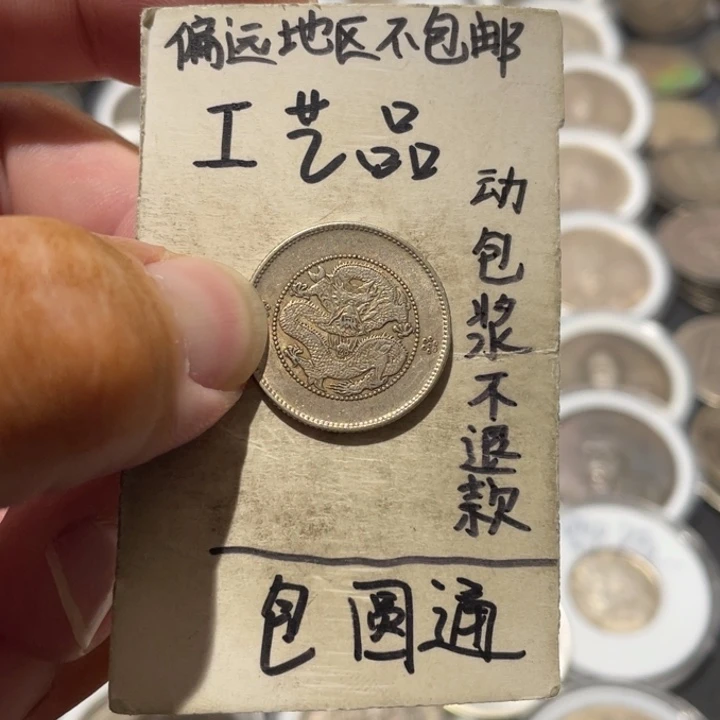 偏远地区不包邮
工艺品
动包浆不退款
包圆通